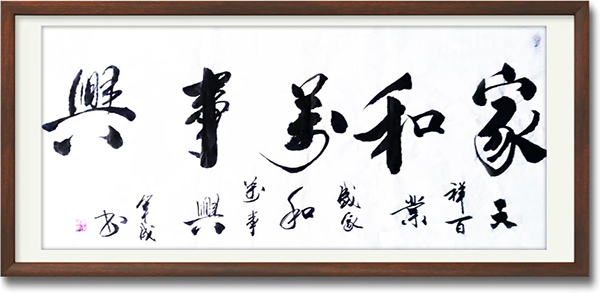 家和萬事興
天祥百業盛家和萬事興
书